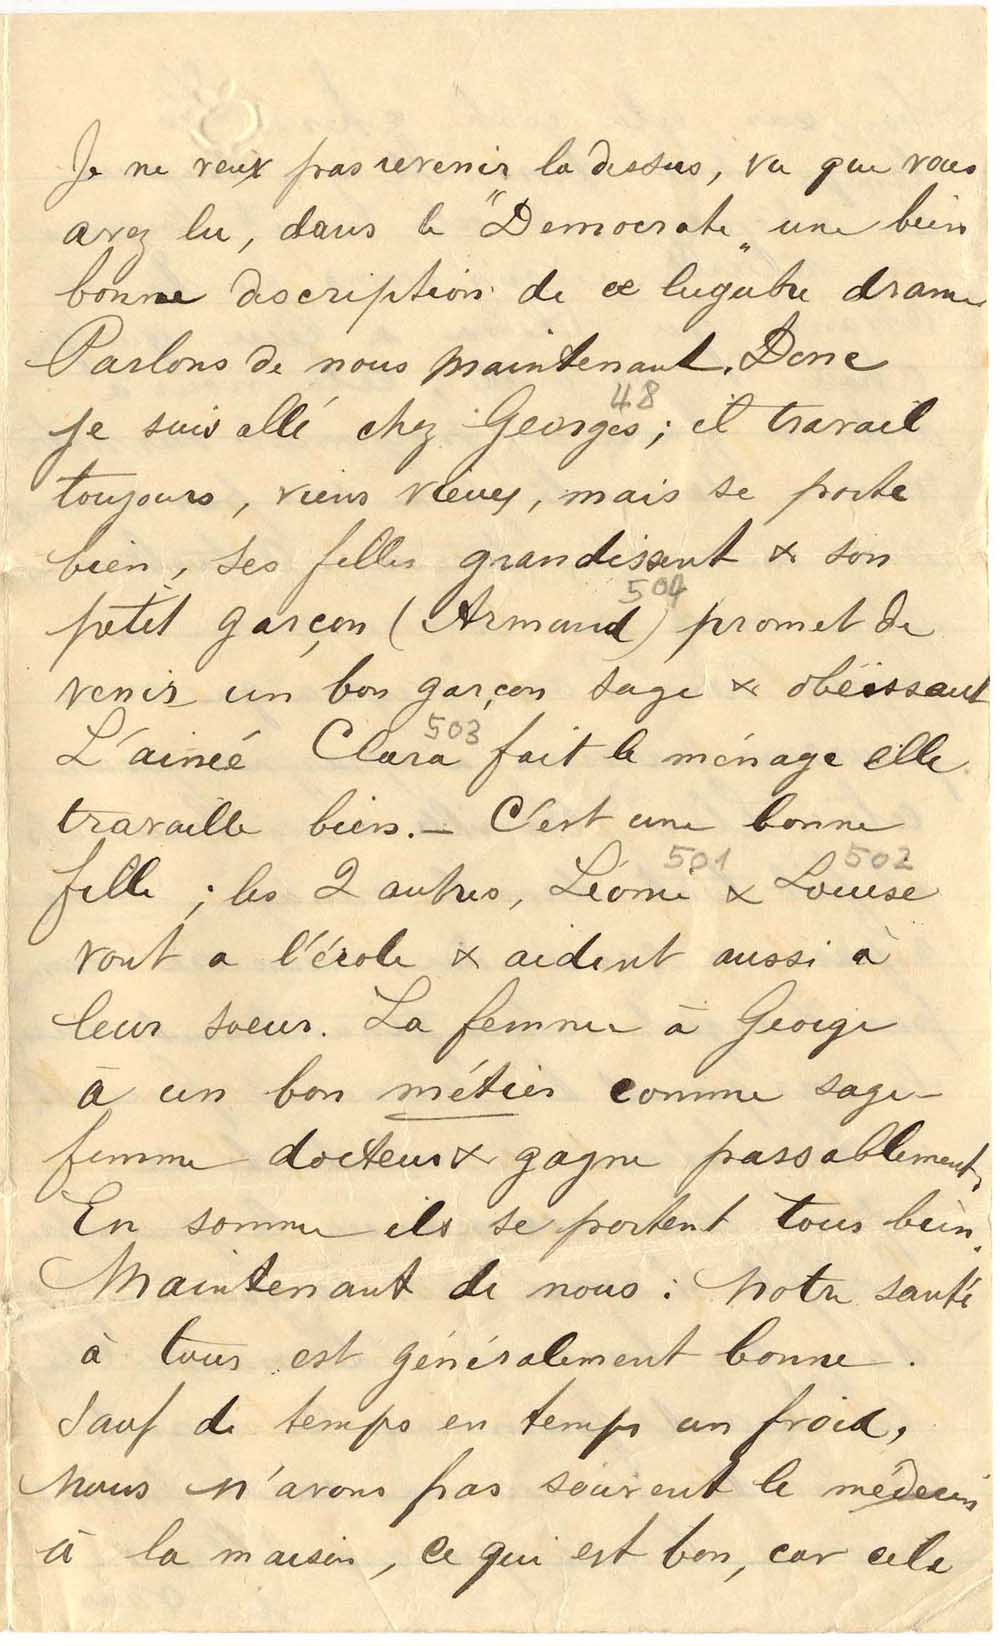 Je ne veux pas revenir la dessus, vu que vous
avez lu, dans le "Democrate" une bien
bonne discription de ce lugubre drame
Parlons de nous maintenant. Donc
48
je suis allé chez Georges; il travail
toujours, viens vieux, mais se porte
bien, ses filles grandissent & son
504
petit garçon (Armand) promet de
venir un bon garçon sage & obéissant
503
L'ainéé Clara fait le ménage elle
travaille bien. — C'est une bonne
501 502
fille; les 2 autres, Léonie & Louise
vont a l'école & aident aussi à
leur soeur. La femme à George
à un bon métier comme sage-
femme docteur & gagne passablement,
En somme ils se portent tous bien.
Maintenant de nous: Notre santé
à tous est généralement bonne.
Sauf de temps en temps un froid,
Nous n'avons pas souvent le médecin
à la maison, ce qui est bon, car cela